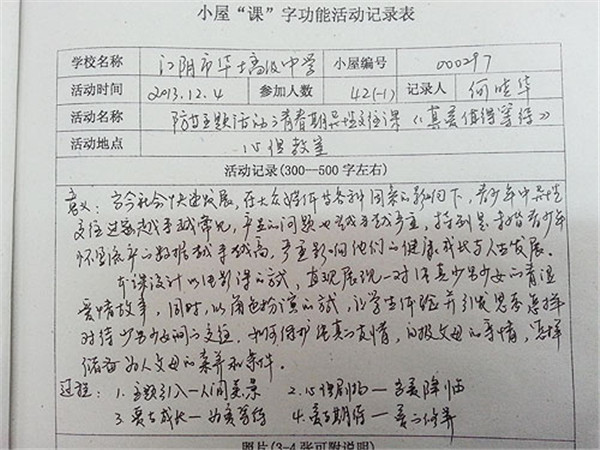 小屋“课”字功能活动记录表
学校名称 江阴市华士高级中学 小屋编号 000297
活动时间 2013.12.4 参加人数 42(-1) 记录人 何晓华
活动名称 防艾主题活动之青春期异性交往课《真爱值得等待》
活动地点 心理教室
活动记录(300—500字左右)
意义：当今社会快速发展，在大众媒体等各种因素的影响下，青少年中异性
交往过密越来越常见，产生的问题也越来越严重，特别是未婚青少年
怀孕流产的数据越来越高，严重影响他们的健康成长与人生发展。
本课设计以电影课的方式，直观展现一对纯真少男少女的青涩
爱情故事，同时，以角色扮演的方式，让学生体验并引发思考怎样
对待少男少女间的交往，如何保护纯真的友情，回报父母的亲情，怎样
储备为人父母的素养和条件。
过程：1. 主题引入—人间美景 2. 心理剧场—当爱降临
3. 爱与成长—为爱等待 4. 爱与期待—爱的修养
照片(3-4张可附说明)